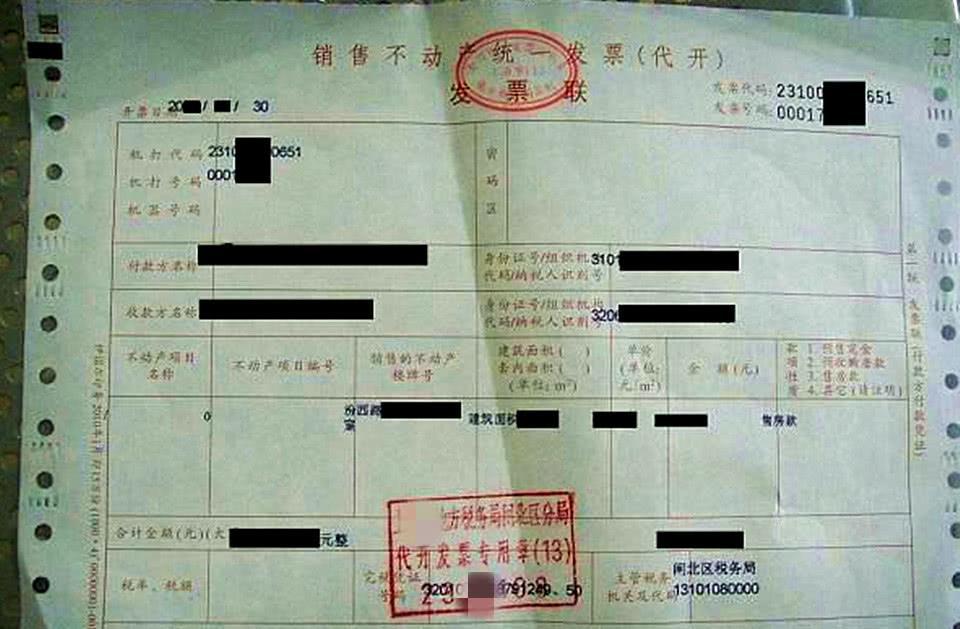 销售不动产统一发票(代开)
发票联
发票代码: 23100 651
发票号码: 00017
开票日期 20 / / 30
机打代码 2310 0651
机打号码 0001
机器号码
密码区
付款方名称
身份证号/组织机构
代码/纳税人识别号 3101
收款方名称
身份证号/组织机构
代码/纳税人识别号 3206
不动产项目名称
不动产项目编号
销售的不动产楼牌号
建筑面积( )
套内面积( )
(单位: m²)
单价
(单位:
元/m²)
金额(元)
款项性质
1. 预售定金
2. 预收购房款
3. 售房款
4. 其它(请注明)
0
西路
室
建筑面积
售房款
合计金额(元)(大
元整
方税务局闸北区分局
代开发票专用章(13)
税率、税额
完税凭证
号码
主管税务
机关及代码
闸北区税务局
13101080000
第二联 发票联(付款方付款凭证)